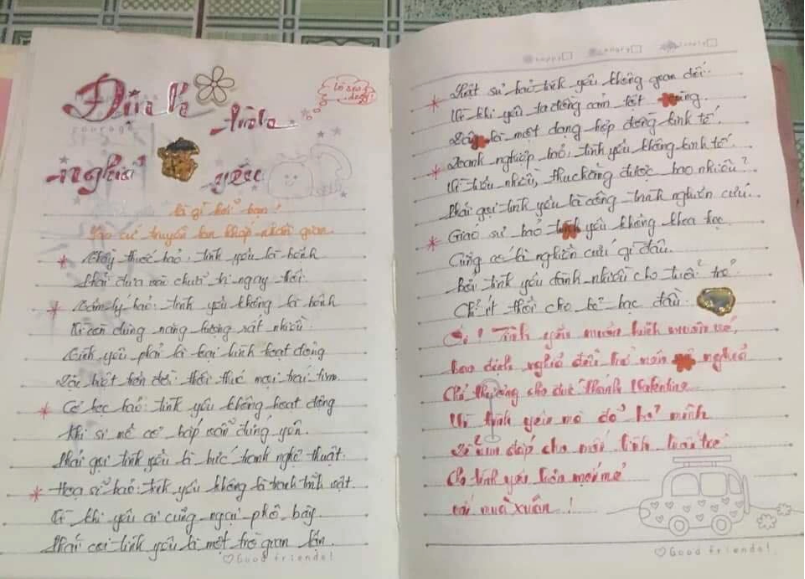 Định
nghĩa
tình
yêu
là gì hỡi bạn!
khắp nhân gian
* Thầy thuốc bảo: tình yêu là bệnh
Phải đưa vào chữa trị ngay thôi
* Tâm lý bảo: tình yêu không là bệnh
Vì cần dùng năng lượng rất nhiều
Tình yêu phải là loại hình hoạt động
Đặc biệt thôi thúc mọi trái tim.
* Cơ học bảo: tình yêu không hoạt động
Khi si mê cơ bắp vẫn đứng yên.
Phải gọi tình yêu là bức tranh nghệ thuật.
* Hoạ sĩ bảo: tình yêu không là tranh
Vì khi yêu ai cũng ngại phô bày
Phải coi tình yêu là một trò gian lận
♡Good friends!
* Luật sư bảo tình yêu không gian dối
Vì khi yêu ta đồng cảm
Đây là một dạng hợp đồng kinh tế.
* Doanh nghiệp bảo: tình yêu không kinh tế.
Vì tiêu nhiều, thu chẳng được bao nhiêu?
Phải gọi tình yêu là công trình nghiên cứu.
* Giáo sư bảo tình yêu không khoa học
Cũng có là nghiên cứu gì đâu.
Bởi tình yêu dành nhiều cho tuổi trẻ
Chỉ ít thôi cho bạc đầu
Ôi! Tình yêu muôn hình muôn vẻ,
bao định nghĩa
Chỉ thương cho đức thánh Valentine
Vì tình yêu mà đổ
cho mối tình tuổi trẻ
Cho tình yêu luôn mới mẻ
mùa xuân!
♡Good friends!